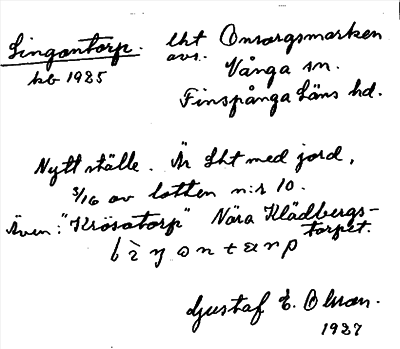 Lingontorp. lht Onsorgsmarken
kb 1925 avs. Vånga sn.
Finspånga läns hd.
Nytt ställe. Är Lht med jord,
3/16 av lotten n:r 10.
Även: "Krösatorp" Nära Klädbergs-
torpet.
Gustaf E. Olson.
1927